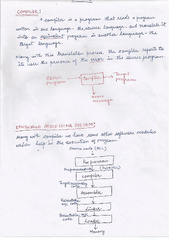 COMPILER:
A compiler is a program that reads a program
written in one language - the source language - and translate it
into an equivalent program in another language - the
target language.
Along with this translation process, the compiler reports to
its user the presence of the error in the source program.
source program → Compiler → Target program
error message
LANGUAGE PROCESSING SYSTEM:
Along with compiler we have some other software modules
which help in the execution of program.
Source code (HLL)
Preprocessor
Compiler
Assembler
Linker
Loader
Memory